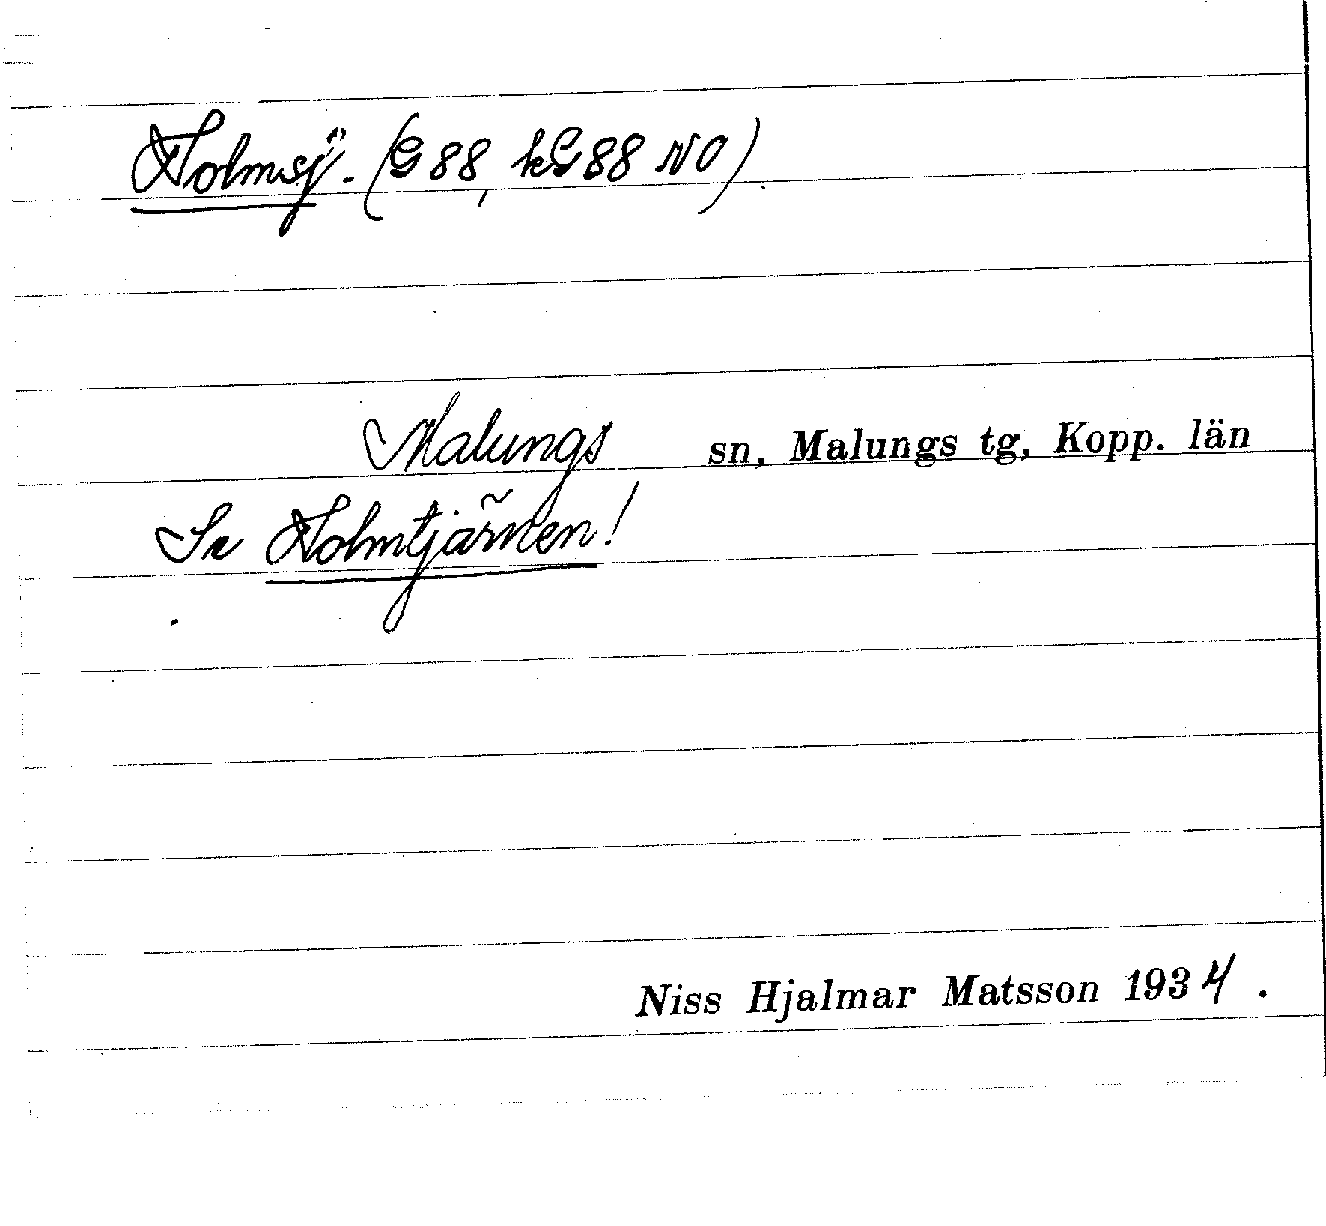 Holmsj". (G 88, kG 88 NO)
Malungs sn, Malungs tg, Kopp. län
Se Holmtjärnen!
Niss Hjalmar Matsson 1934.